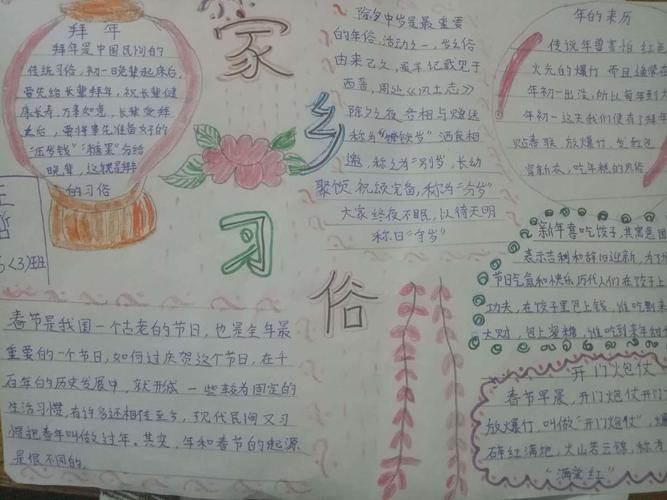 拜年
拜年是中国民间的
传统习俗,初一晚辈起床后,
要先给长辈拜年,祝长辈健
康长寿,万事如意,长辈受拜
之后,要将事先准备好的
“压岁钱”“糖果”分给
晚辈,这就是拜
的习俗
(3)班
家
乡
习
俗
除夕守岁是最重要
的年俗活动之一,守岁俗
由来已久,最早记载见于
西晋,周处《风土志》
除夕之夜各相与赠送
称为“馈岁”酒食相
邀,称之为“别岁”,长幼
聚饮祝颂完备,称为“分岁”
大家终夜不眠,以待天明
称曰“守岁”
年的来历
传说年兽害怕红色
火光的爆竹而且通常在
年初一出没,所以每年到
年初一这天我们便有了拜年
贴春联,放爆竹,发红包
穿新衣,吃年糕的风俗
新年喜吃饺子,其寓意团
表示吉利和辞旧迎新,为了
节日气氛和快乐历代人们在饺子
功夫,在饺子里包上钱,谁吃到来
大财,包上蜜糖,谁吃到来年甜
春节是我国一个古老的节日,也是全年最
重要的一个节日,如何过庆贺这个节日,在千
百年的历史发展中,就形成一些较为固定的
生活习惯,有许多还相传至今,现代民间又习
惯把春年叫做过年。其实,年和春节的起源
是很不同的。
开门炮仗
春节早晨,开门炮仗开门
放爆竹,叫做“开门炮仗”,爆
碎红满地,火山若云锦,称为
“满堂红”